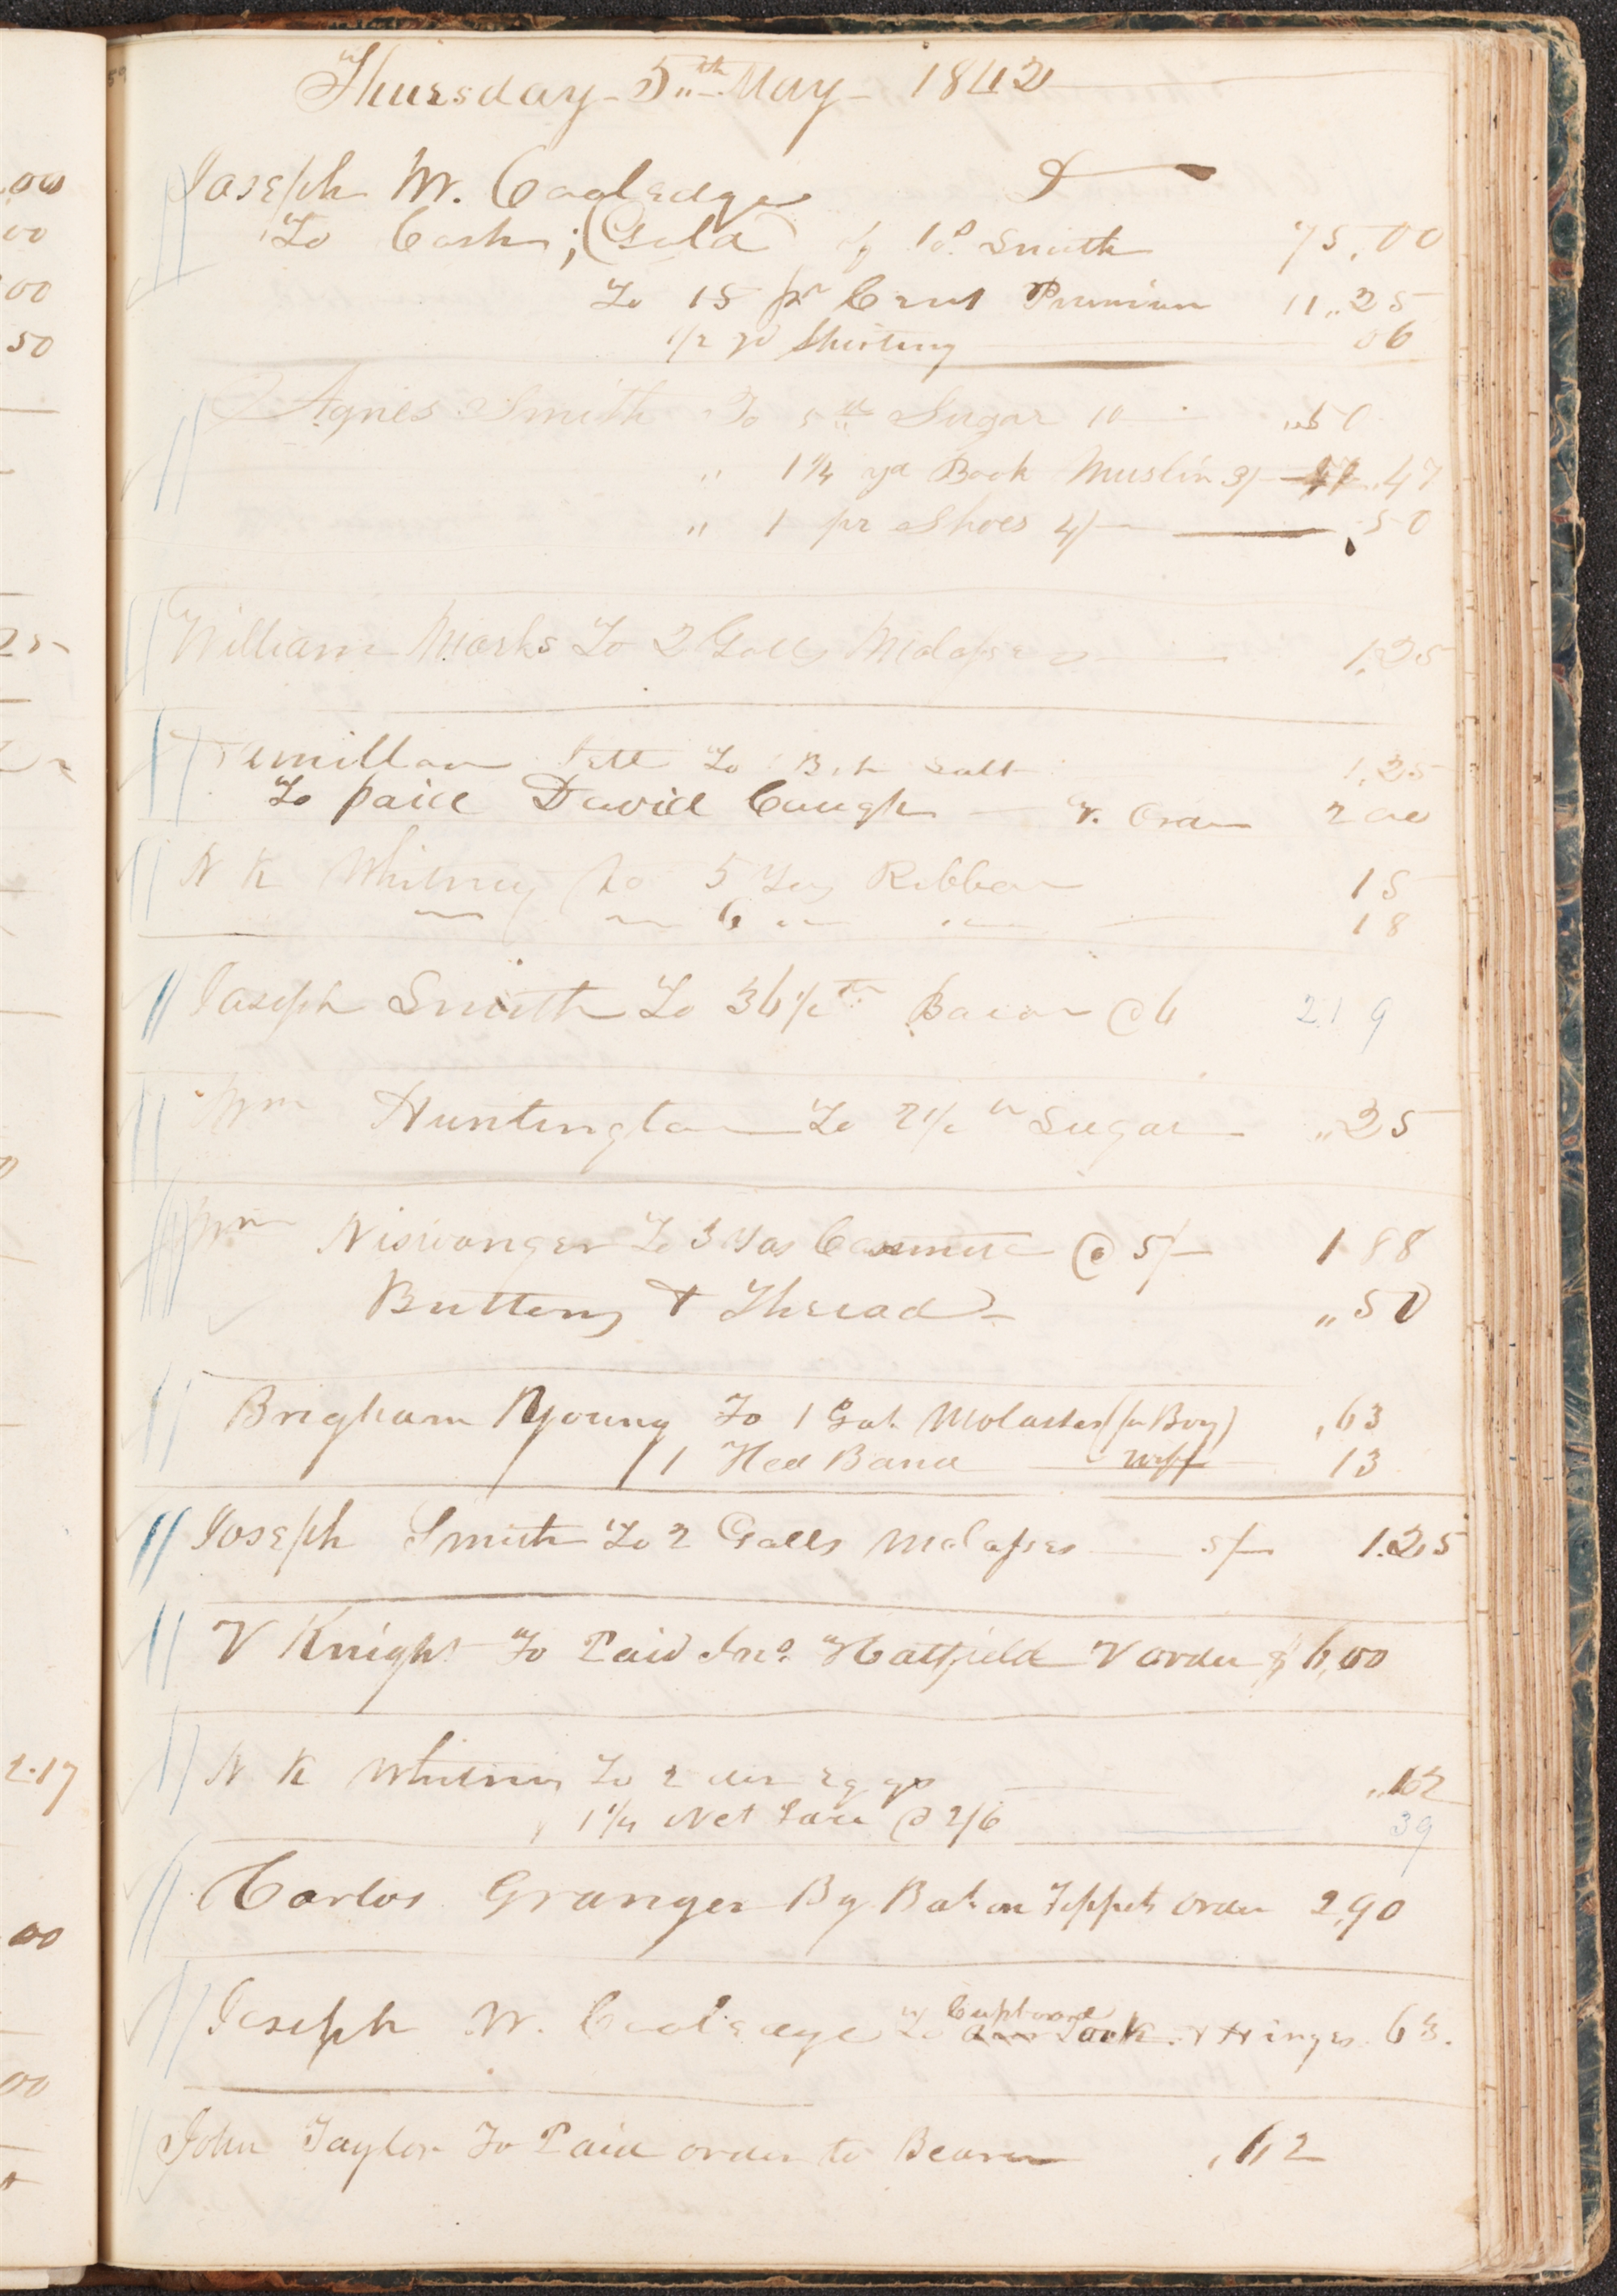 Thursday 5th May 1842
Joseph W. Coolidge Dr
To Cash; (Gold) of Jos Smith 75.00
To 15 pr Cent Premium 11,,25
1/2 yd Shirting 06
Agnes Smith To 5 lb Sugar 10 ,,50
" 1 1/4 yd Book Muslin 3/ ,,47
" 1 pr Shoes 4/ ,50
William Marks To 2 Galls Molasses 1.25
Temillon To Salt 1.25
To paid David 2 00
N K Whitney To 5 Yds Ribbon 15
6 18
Joseph Smith To 36 1/2 lb Bacon @ 6 219
Wm Huntington To 2 1/2 " Sugar ,,25
Wm Niswanger To 3 Yds @ 5/ 1 88
Buttons & Thread ,,50
Brigham Young To 1 Gal. Molasses (for Boy) ,63
1 Hed Band wife 13
Joseph Smith To 2 Galls Molasses 5/ 1.25
V Knight To Paid Jno. Hatfield V order $6,00
N. K Whitney To 2 doz Eggs
1 1/4 Net Lace @ 2/6 39
Carlos Granger By Bal. on Tippets order 2,90
Cupboard
Joseph W. Coolidge To Lock & Hinges 63.
John Taylor To Paid order to Bearer ,62
2.17